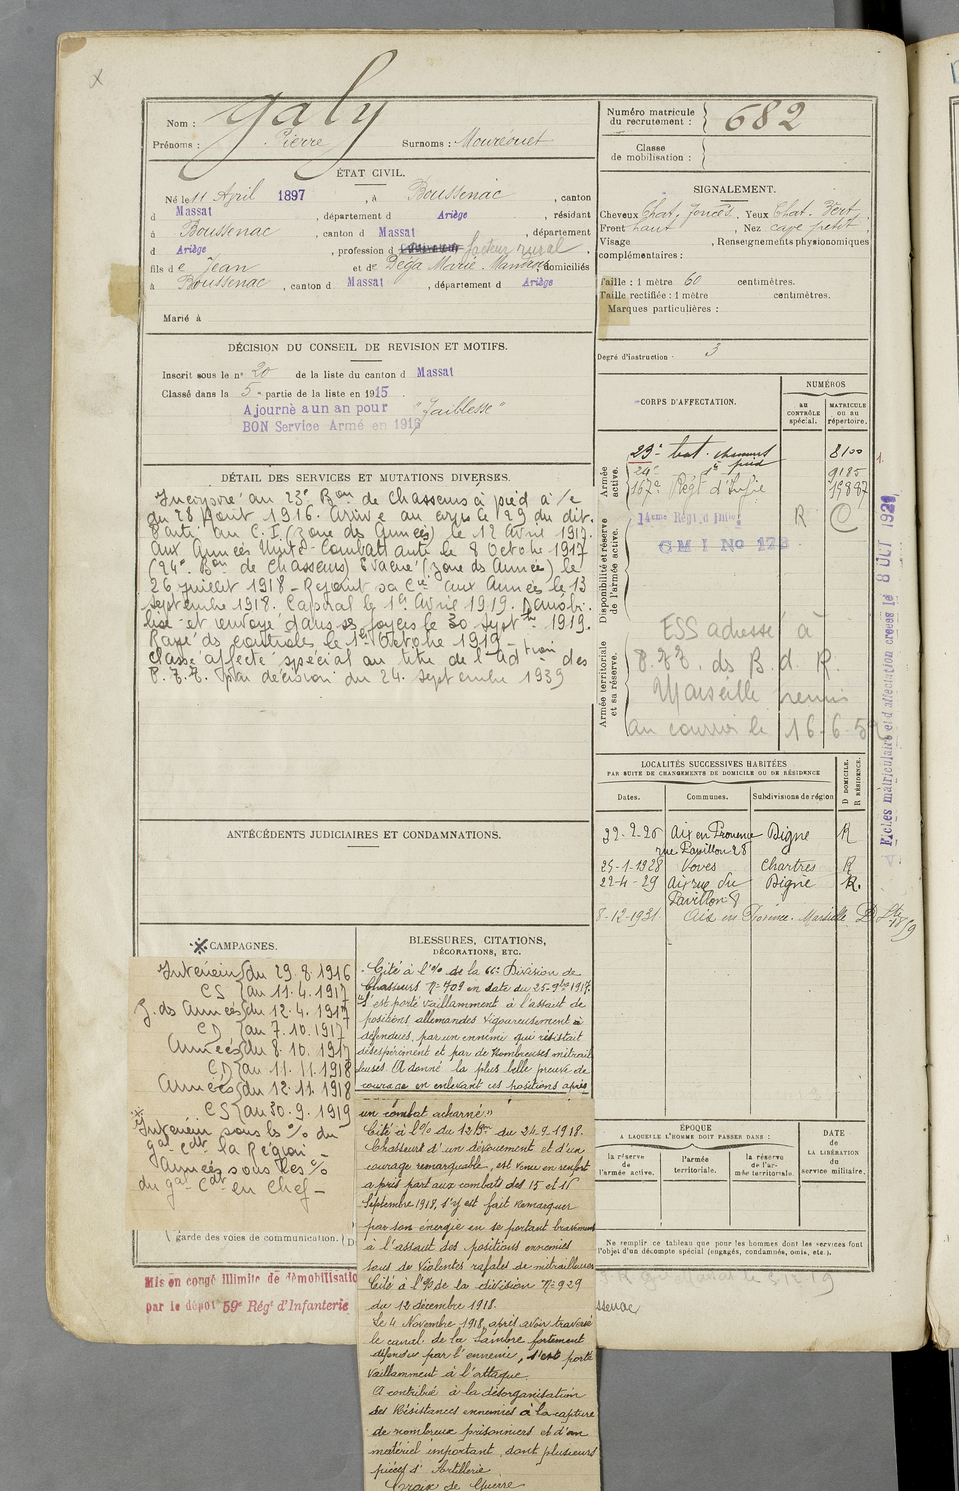 Nom : Galy
Prénoms : Pierre Surnoms : Mouréouet
Numéro matricule du recrutement : 682
Classe de mobilisation :
ÉTAT CIVIL.
Né le 11 April 1897, à Boussenac, canton
d Massat, département d Ariège, résidant
à Boussenac, canton d Massat, département
d Ariège, profession d facteur rural
fils de Jean et de Dega Marie, domiciliés
à Boussenac, canton d Massat, département d Ariège
Marié à
SIGNALEMENT.
Cheveux Chat. foncés, Yeux Chat. Vert,
Front haut, Nez cave petit,
Visage , Renseignements physionomiques
complémentaires :
Taille : 1 mètre 60 centimètres.
Taille rectifiée : 1 mètre centimètres.
Marques particulières :
Degré d'instruction : 3
DÉCISION DU CONSEIL DE REVISION ET MOTIFS.
Inscrit sous le n° 20 de la liste du canton d Massat
Classé dans la 5e partie de la liste en 1915.
Ajourné a un an pour "faiblesse"
BON Service Armé en 1916
DÉTAIL DES SERVICES ET MUTATIONS DIVERSES.
Incorporé au 23e Bon de Chasseurs à pied à /c
du 28 Août 1916. Arrivé au corps le 29 du dit.
Parti au C.I. (zone des Armées) le 12 Avril 1917.
Aux Armées Unité Combattante le 8 Octobre 1917
(24e Bon de Chasseurs) Evacué (zone ds Armées) le
26 juillet 1918 - Rejoint sa Cie aux Armées le 13
septembre 1918. Caporal le 1er Avril 1919. Démobi-
lisé et renvoyé dans ses foyers le 30 septbre 1919.
Rayé ds contrôles le 1er Octobre 1919 -
Classé affecté spécial au titre de l'Adtion des
P.T.T. par décision du 24 septembre 1939
CORPS D'AFFECTATION.
NUMÉROS
au CONTRÔLE spécial.
MATRICULE ou au répertoire.
Armée active.
23e bat. chasseurs à pied 8100
24e 9185
167e Régt d'Infie 15887
Disponibilité et réserve de l'armée active.
14eme Régt d'Infie R C
C M I No 173
Armée territoriale et sa réserve.
ESS adressé à
P.T.T. ds B. d. R.
Marseille remis
au courrier le 16-6-52
Fiches matriculaire et d'affectation créées le 8 OCT 1921
LOCALITÉS SUCCESSIVES HABITÉES
PAR SUITE DE CHANGEMENTS DE DOMICILE OU DE RÉSIDENCE
Dates. Communes. Subdivisions de région D DOMICILE. R RÉSIDENCE.
22-2-26 Aix en Provence Digne R
rue Pavillon 28
25-1-1928 Voves Chartres R
22-4-29 Aix rue du Digne R.
Pavillon 8
8-12-1931 Aix en Provence. Marseille D
ANTÉCÉDENTS JUDICIAIRES ET CONDAMNATIONS.
CAMPAGNES.
Intérieur du 29.8.1916
CS au 11.4.1917
Z. ds Armées du 12.4.1917
CD au 7.10.1917
Armées du 8.10.1917
CD au 11.11.1918
Armées du 12.11.1918
CS au 30.9.1919
Intérieur sous les % du
gal Cdt la Région -
Armées sous les %
du gal Cdt en Chef -
garde des voies de communication.
Mis en congé illimité de démobilisation
par le dépôt 59e Régt d'Infanterie
BLESSURES, CITATIONS,
DÉCORATIONS, ETC.
Cité à l'% de la 66e Division de
Chasseurs N° 709 en date du 25-9bre 1917.
"S'est porté vaillamment à l'assaut de
positions allemandes vigoureusement
défendues, par un ennemi qui résistait
désespérément et par de nombreuses mitrail-
leuses. A donné la plus belle preuve de
courage en enlevant ces positions après
un combat acharné."
Cité à l'% du 12 Bon du 24-9-1918.
Chasseur d'un dévouement et d'un
courage remarquable, est venu en renfort
a pris part aux combats des 15 et 16
Septembre 1918, s'y est fait remarquer
par son énergie en se portant bravement
à l'assaut des positions ennemies
sous de violentes rafales de mitrailleuses
Cité à l'% de la division N° 929
du 12 décembre 1918.
Le 4 Novembre 1918, après avoir traversé
le canal de la Sambre fortement
défendu par l'ennemi, s'est porté
vaillamment à l'attaque.
A contribué à la désorganisation
des Résistances ennemies à la capture
de nombreux prisonniers et d'un
matériel important, dont plusieurs
pièces d'Artillerie.
Croix de Guerre
ÉPOQUE
A LAQUELLE L'HOMME DOIT PASSER DANS :
la réserve de l'armée active.
l'armée territoriale.
la réserve de l'armée territoriale.
DATE de LA LIBÉRATION du service militaire.
Ne remplir ce tableau que pour les hommes dont les services font
l'objet d'un décompte spécial (engagés, condamnés, omis, etc.).
ssenac